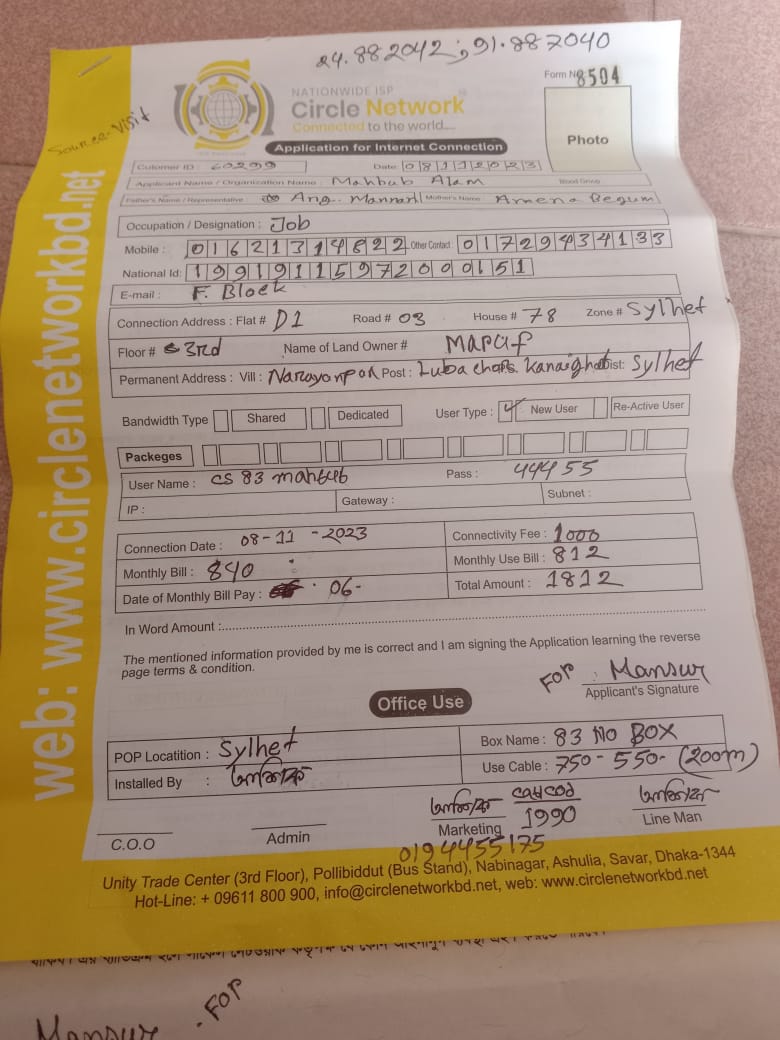 24.882042; 91.887040
Form No 8504
NATIONWIDE ISP
Circle Network
Connected to the world....
Source-Visit
Photo
Application for Internet Connection
Customer ID : 60299 Date: 08112023
Applicant Name / Organization Name : Mahbub Alam Blood Group
Father's Name / Representative Mannan Mother's Name Amena Begum
Occupation / Designation : Job
Mobile : 01621314822 Other Contact : 01729434133
National Id: 19919115972000151
E-mail : F. Block
Connection Address : Flat # D1 Road # 03 House # 78 Zone # Sylhet
Floor # 3rd Name of Land Owner # Maruf
Permanent Address : Vill : Narayonpor Post : Kanaighat Dist: Sylhet
Bandwidth Type Shared Dedicated User Type : ✓ New User Re-Active User
Packeges
User Name : cs 83 mahbub Pass : 44455
IP : Gateway : Subnet :
Connection Date : 08-11-2023 Connectivity Fee : 1000
Monthly Bill : 840 Monthly Use Bill : 812
Date of Monthly Bill Pay : 06- Total Amount : 1812
In Word Amount :
The mentioned information provided by me is correct and I am signing the Application learning the reverse
page terms & condition.
FOR Mansur
Applicant's Signature
Office Use
POP Locatition : Sylhet Box Name : 83 NO BOX
Installed By : Use Cable : 750-550- (200m)
1990
C.O.O Admin Marketing Line Man
01944455175
Unity Trade Center (3rd Floor), Pollibiddut (Bus Stand), Nabinagar, Ashulia, Savar, Dhaka-1344
Hot-Line: + 09611 800 900, info@circlenetworkbd.net, web: www.circlenetworkbd.net
web: www.circlenetworkbd.net
Mansur . FOR